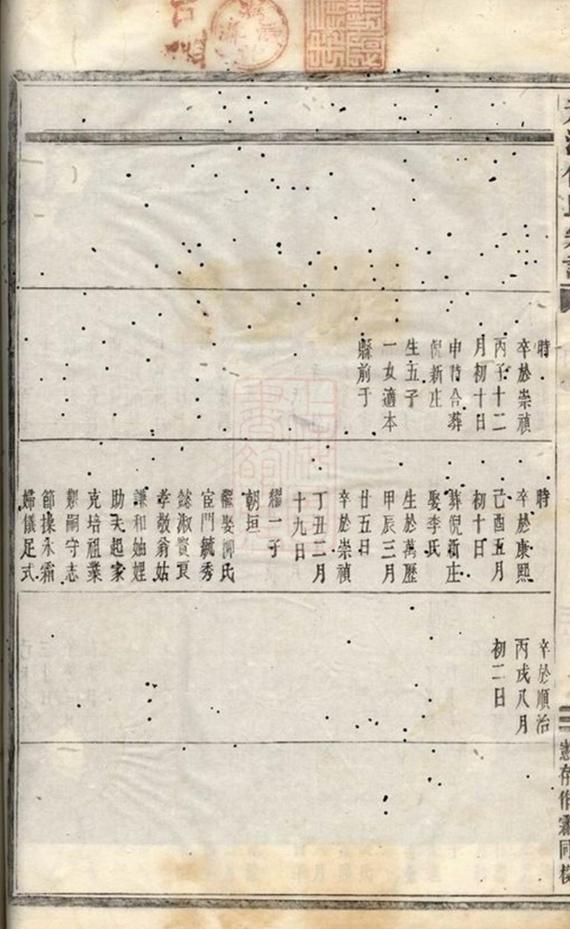 時
卒於崇禎
丙子十二
月初十日
申時合葬
倪新庄
生五子
一女適本
縣前于
時
卒於康熙
己酉五月
初十日
葬倪新庄
娶李氏
生於萬歷
甲辰三月
廿五日
卒於崇禎
丁丑二月
十九日
耀一子
朝垣
繼娶鄭氏
宦門毓秀
懿淑賢良
孝敬翁姑
謙和妯娌
助夫起家
克培祖業
鄭嗣守志
節操永霜
婦儀足式
卒於順治
丙戌八月
初二日